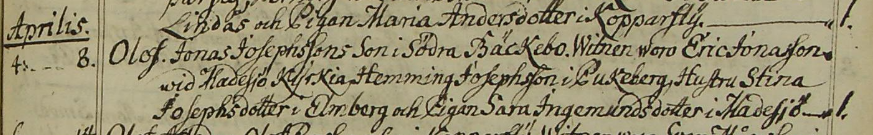 Lindås och Pigan Maria Andersdotter i Kopparfly. 1.
Aprilis.
4. 8. Olof. Jonas Josephssons Son i Södra Bäckebo. Witnen woro Eric Jonasson
wid Madesjö Kyrkia, Hemming Josephsson i Pukeberg, Hustru Stina
Josephsdotter i Elmberg och Pigan Sara Ingemundsdotter i Madesjö 1.